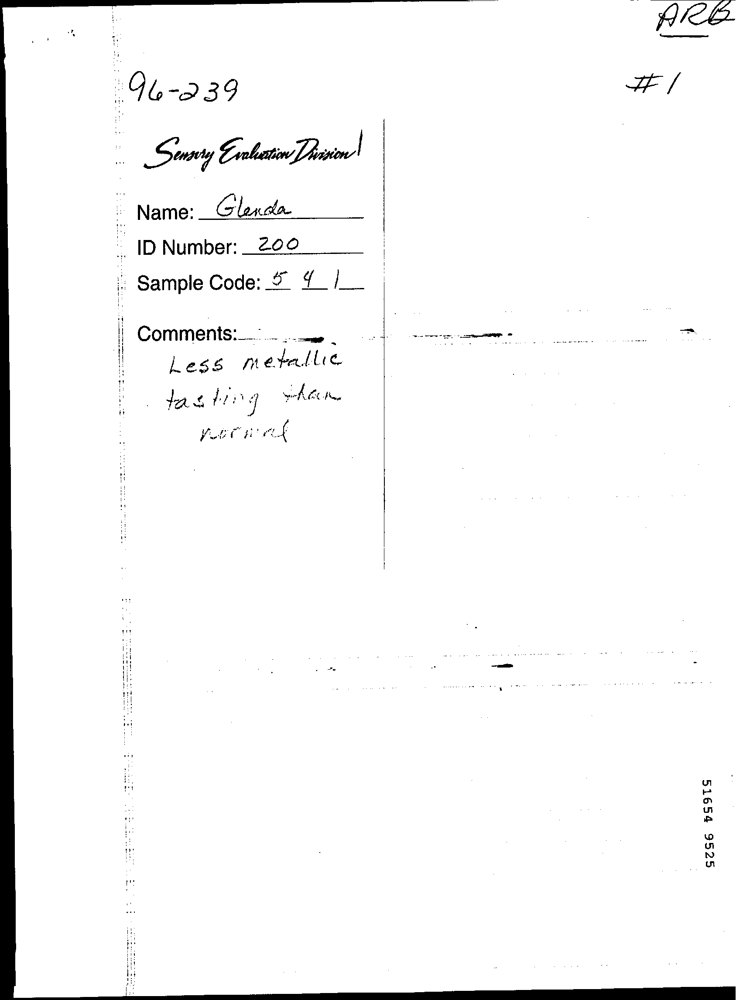 ARB
96-239
#1
Sensory Evaluation Division
Name: Glenda
ID Number: 200
Sample Code: 5 4 1
Comments:
Less metallic
tasting than
normal
51654 9525